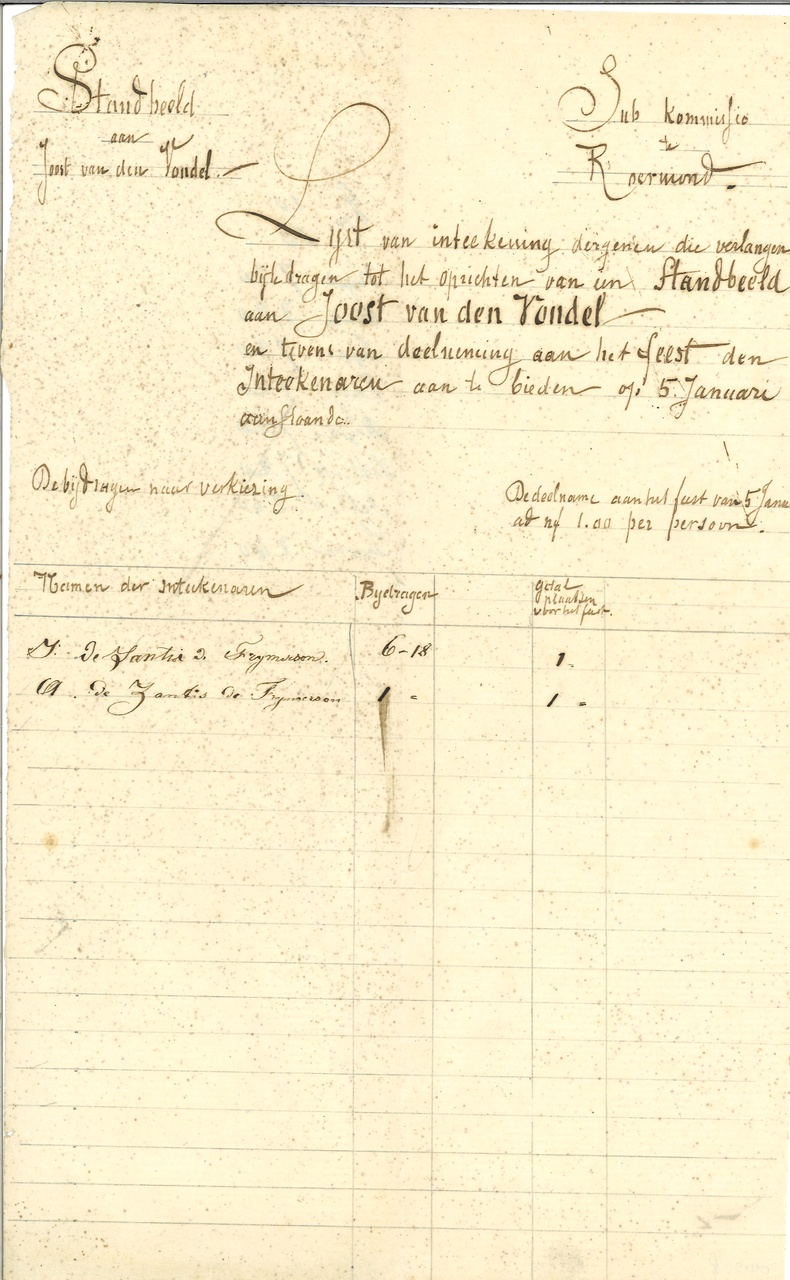 Standbeeld
aan
Joost van den Vondel.
Sub Kommissie
te
Roermond.
Lijst van inteekening dergenen die verlangen
bij te dragen tot het oprichten van een Standbeeld
aan Joost van den Vondel
en tevens van deelneming aan het feest den
Inteekenaren aan te bieden op 5 Januari
aanstaande.
De bijdragen naar verkiezing.
De deelname aan het feest van 5 Janu
ad nf 1.00 per persoon.
Namen der inteekenaren
Bijdragen
getal
plaatsen
voor het feest.
de Zantis d. Frymerson.
6-18
1-
A. de Zantis de Frymerson
1 -
1 -